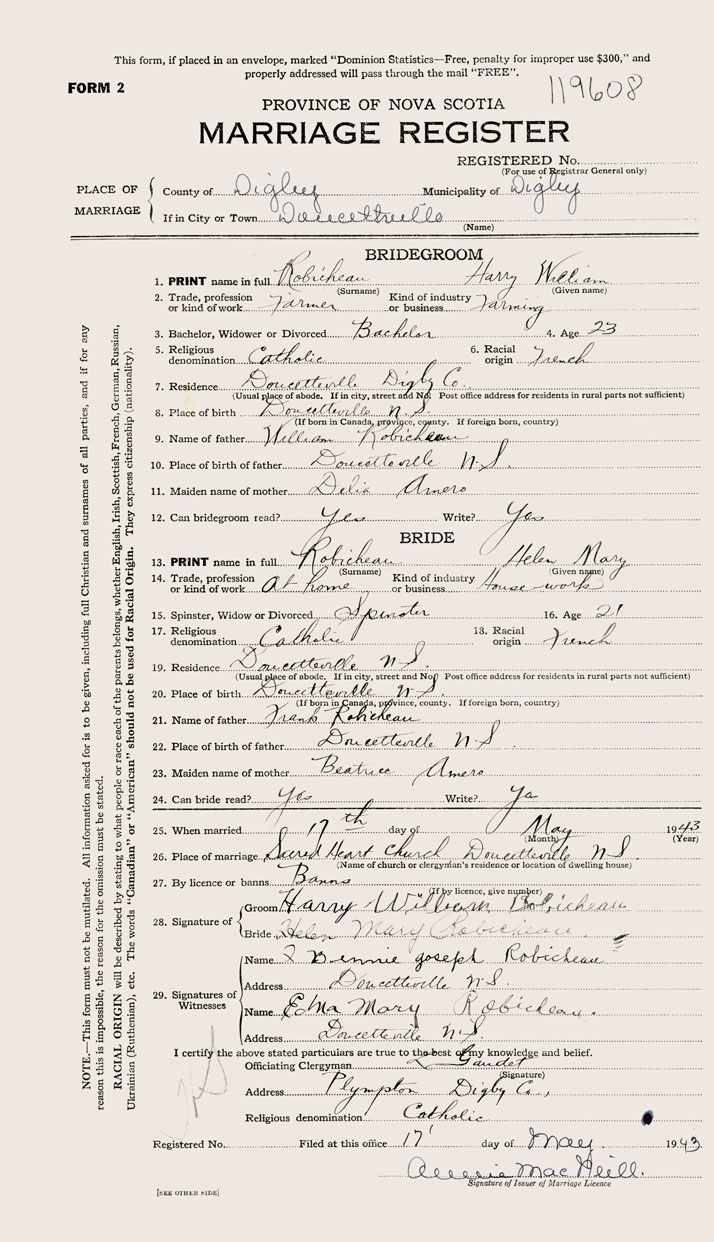 This form, if placed in an envelope, marked "Dominion Statistics—Free, penalty for improper use $300," and
properly addressed will pass through the mail "FREE".
FORM 2
119608
PROVINCE OF NOVA SCOTIA
MARRIAGE REGISTER
REGISTERED No.
(For use of Registrar General only)
PLACE OF MARRIAGE
County of Digby Municipality of Digby
If in City or Town Doucetteville
(Name)
BRIDEGROOM
1. PRINT name in full Robicheau Harry William
(Surname) (Given name)
2. Trade, profession or kind of work Farmer Kind of industry or business Farming
3. Bachelor, Widower or Divorced Bachelor 4. Age 23
5. Religious denomination Catholic 6. Racial origin French
7. Residence Doucetteville Digby Co.
(Usual place of abode. If in city, street and No. Post office address for residents in rural parts not sufficient)
8. Place of birth Doucetteville N.S.
(If born in Canada, province, county. If foreign born, country)
9. Name of father William Robicheau
10. Place of birth of father Doucetteville N.S.
11. Maiden name of mother Delia Amero
12. Can bridegroom read? Yes Write? Yes
BRIDE
13. PRINT name in full Robicheau Helen Mary
(Surname) (Given name)
14. Trade, profession or kind of work At home Kind of industry or business House-work
15. Spinster, Widow or Divorced Spinster 16. Age 21
17. Religious denomination Catholic 18. Racial origin French
19. Residence Doucetteville N.S.
(Usual place of abode. If in city, street and No. Post office address for residents in rural parts not sufficient)
20. Place of birth Doucetteville N.S.
(If born in Canada, province, county. If foreign born, country)
21. Name of father Frank Robicheau
22. Place of birth of father Doucetteville N.S.
23. Maiden name of mother Beatrice Amero
24. Can bride read? Yes Write? Ya
25. When married 17th day of May 1943
(Month) (Year)
26. Place of marriage Sacred Heart Church Doucetteville N.S.
(Name of church or clergyman's residence or location of dwelling house)
27. By licence or banns Banns
(If by licence, give number)
28. Signature of
Groom Harry William Robicheau
Bride Helen Mary Robicheau
29. Signatures of Witnesses
Name Binnie Joseph Robicheau
Address Doucetteville N.S.
Name Edna Mary Robicheau.
Address Doucetteville N.S.
I certify the above stated particulars are true to the best of my knowledge and belief.
Officiating Clergyman Gaudet
(Signature)
Address Plympton Digby Co.,
Religious denomination Catholic
Registered No. Filed at this office 17 day of May 1943
Annie MacNeill.
Signature of Issuer of Marriage Licence
[SEE OTHER SIDE]
NOTE.—This form must not be mutilated. All information asked for is to be given, including full Christian and surnames of all parties, and if for any
reason this is impossible, the reason for the omission must be stated.
RACIAL ORIGIN will be described by stating to what people or race each of the parents belongs, whether English, Irish, Scottish, French, German, Russian,
Ukrainian (Ruthenian), etc. The words "Canadian" or "American" should not be used for Racial Origin. They express citizenship (nationality).